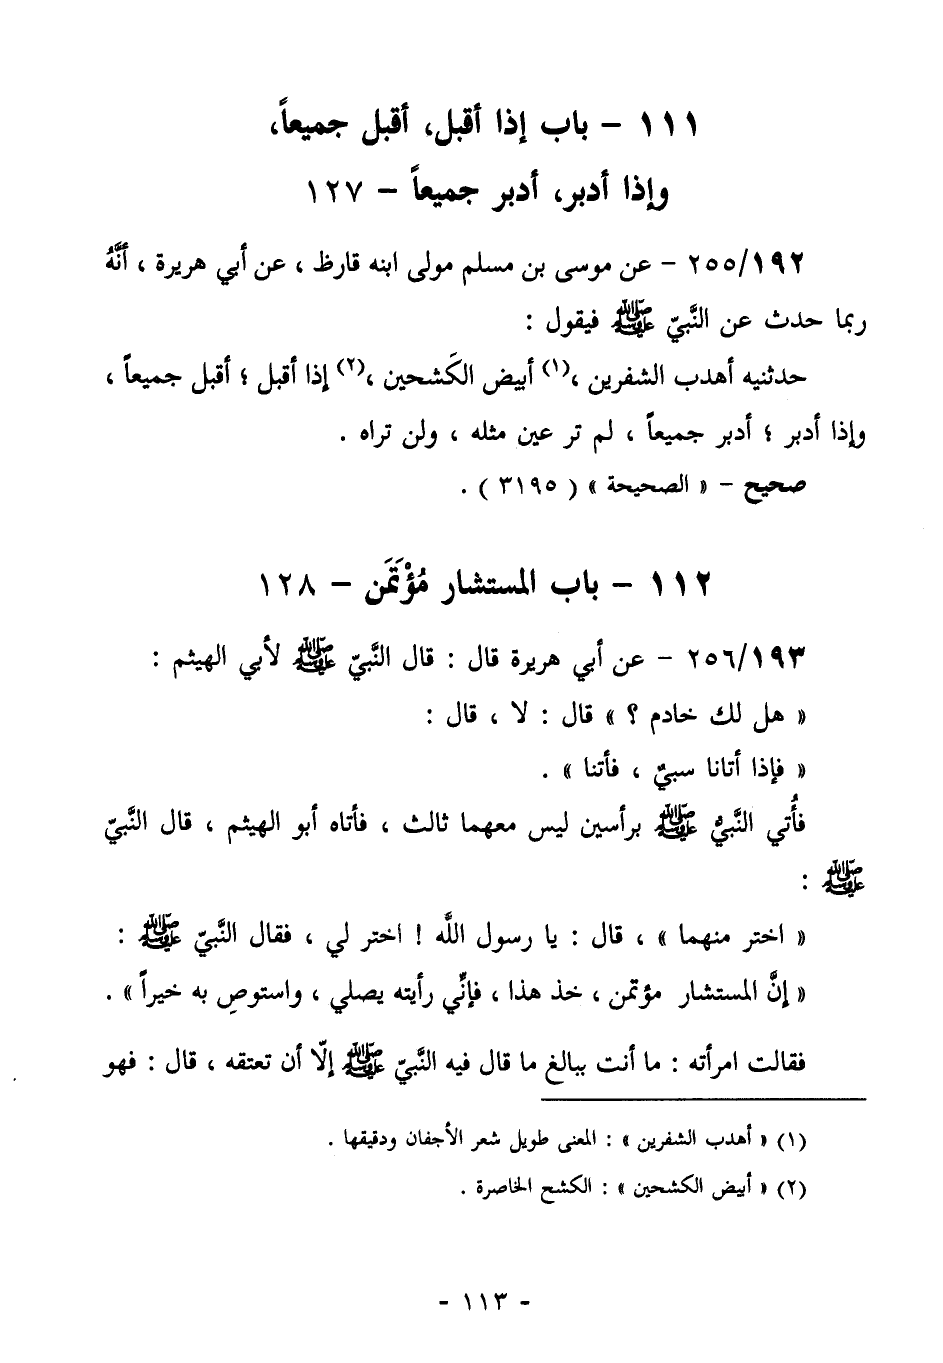 ١١١ – باب إذا أقبل، أقبل جميعاً،
وإذا أدبر، أدبر جميعاً – ١٢٧
٢٥٥/١٩٢ – عن موسى بن مسلم مولى ابنه قارظ ، عن أبي هريرة ، أنَّهُ
ربما حدث عن النَّبيّ ﷺ فيقول :
حدثنيه أهدب الشفرين ،(١) أبيض الكَشحين ،(٢) إذا أقبل ؛ أقبل جميعاً ،
وإذا أدبر ؛ أدبر جميعاً ، لم تر عين مثله ، ولن تراه .
صحيح – « الصحيحة » ( ٣١٩٥ ) .
١١٢ – باب المستشار مُؤْتَمَن – ١٢٨
٢٥٦/١٩٣ – عن أبي هريرة قال : قال النَّبيّ ﷺ لأبي الهيثم :
« هل لك خادم ؟ » قال : لا ، قال :
« فإذا أتانا سبيٌ ، فأتنا » .
فأُتي النَّبيُّ ﷺ برأسين ليس معهما ثالث ، فأتاه أبو الهيثم ، قال النَّبيّ
ﷺ :
« اختر منهما » ، قال : يا رسول اللَّه ! اختر لي ، فقال النَّبيّ ﷺ :
« إنَّ المستشار مؤتمن ، خذ هذا ، فإنِّي رأيته يصلي ، واستوصِ به خيراً » .
فقالت امرأته : ما أنت ببالغ ما قال فيه النَّبيّ ﷺ إلّا أن تعتقه ، قال : فهو
(١) « أهدب الشفرين » : المعنى طويل شعر الأجفان ودقيقها .
(٢) « أبيض الكشحين » : الكشح الخاصرة .
- ١١٣ -